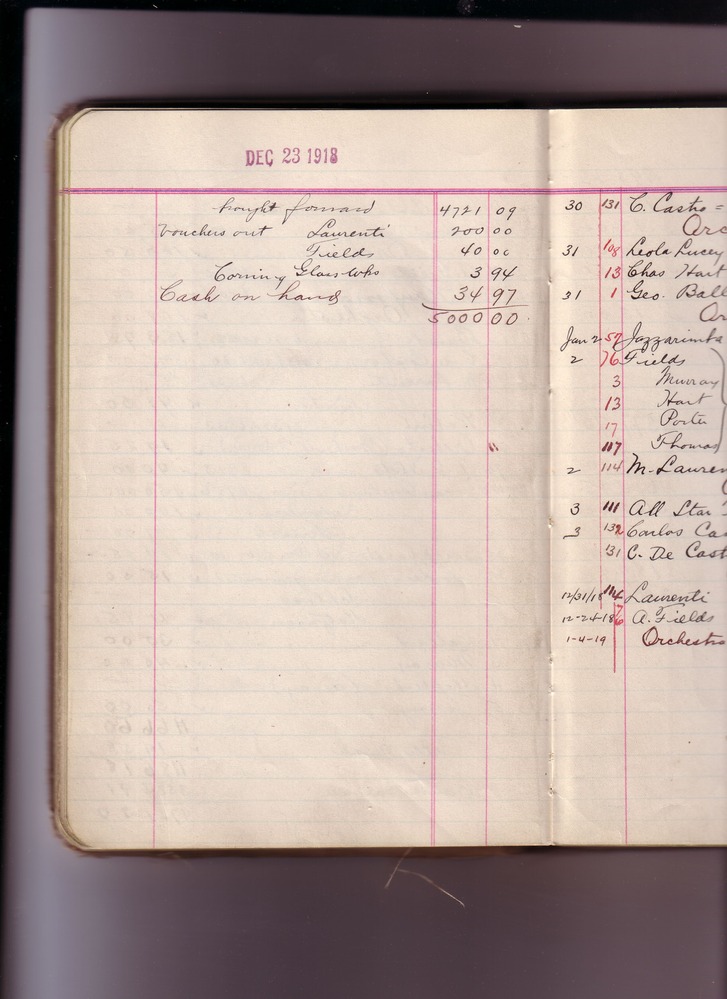 DEC 23 1918
brought forward 4721 09
Vouchers out Laurenti 200 00
Fields 40 00
Corning Glass Wks 3 94
Cash on hand 34 97
5000 00
30 131 C. Castro =
Orc
31 108 Leola Lucey
13 Chas Hart
31 1 Geo. Ball
Or
Jan 2 57 Jazzarimba
2 76 Fields
3 Murray
13 Hart
17 Porter
117 Thomas
2 114 M. Lauren
3 111 All Star
3 132 Carlos Cas
131 C. De Cast
12/31/18 114 Laurenti
12-24-18 76 A. Fields
1-4-19 Orchestra